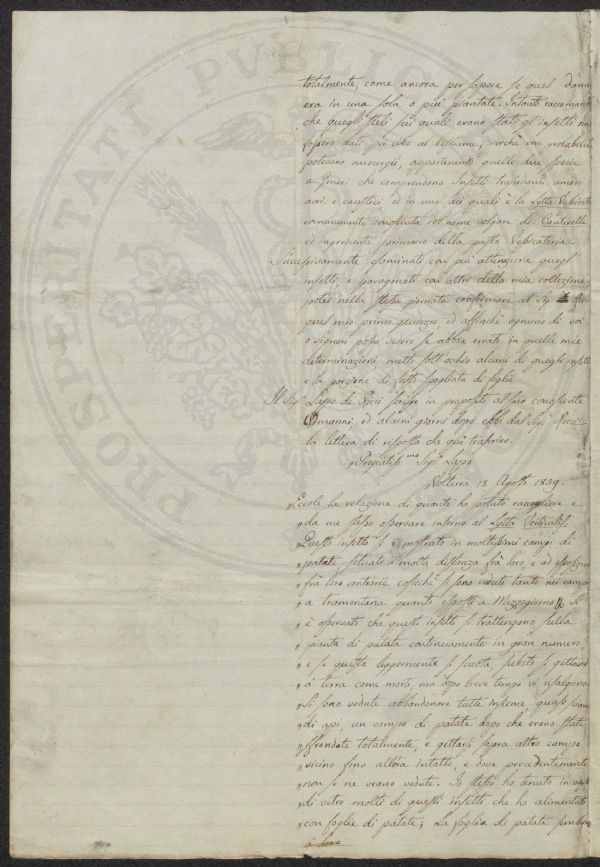 totalmente, come ancora per sapere se quel dann
era in una sola o più piantate. Intanto raccoman
che quegli steli sui quali erano stati gl'insetti non
fossero dati per cibo al bestiame, perchè
potevano nuocergli, appartenendo quelle due specie
a Generi che comprendono Insetti umori
acri e caustici ed in uno dei quali è la Lytta Vessicato
comunemente conosciuta col nome volgare di Canterelle
ed ingrediente primario della pasta Vessicatoria.
Successivamente esaminati con più attenzione quegl
insetti, e paragonati con altri della mia collezione
potei nella stessa giornata confermare al Sig Ricci
quel mio primo giudizio, ed affinchè ognuno di voi
o signori possa vedere se abbia errato in quelle mie
determinazioni metto sott'occhio alcuni di quegli inset
e la porzione di fusto spogliata di foglie
Il Sigr Lapo de Ricci scrisse in proposito al suo conoscente
Ormanni, ed alcuni giorni dopo ebbi dal Sigr Ricci
la lettera di risposta che qui trascrivo.
"Pregiatissmo Sigr Lapo
Volterra 13 Agosto 1839.
"Eccole la relazione di quanto ho potuto raccogliere e
"da me stesso osservare intorno al Lytta Verticalis.
"Questo insetto si è mostrato in moltissimi campi di
"patate situate a molta distanza frà loro, e ad esposizion
"frà loro contrarie cosicchè si sono vedute tanto nei campi
"a tramontana quanto esposti a Mezzogiorno. Si
"è osservato che questi insetti si trattengono sulla
"pianta di patata continuamente in gran numero,
"e se questa leggermente si scuota, subito si gettano
"a terra come morti, ma dopo breve tempo vi risalgono.
"Si sono vedute abbandonare tutte insieme, quasi sciami
"di api, un campo di patate dopo che erano state
"sfrondate totalmente, e gettarsi sopra altro campo
"vicino fino allora intatto, e dove precedentemente
"non se ne erano vedute. Io stesso ho tenuto in vasi
"di vetro molti di questi insetti che ho alimentato
"con foglie di patate; La foglia di patata sembra
"a loro
PROSPERITATI PUBLIC